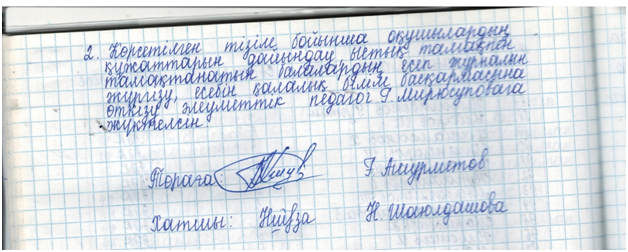 2. Көрсетілген тізіле бойынша оқушылардың
құжаттарын дайындау ыстық тамақпен
тамақтанатын балалардың есеп журналын
жүргізу, есебін қалалық білім басқармасына
өткізу әлеуметтік педагог Г. Мирюсуповаға
жүктелсін.
Төраға: Г. Ашурметов
Хатшы: Н. Шаюлдашова